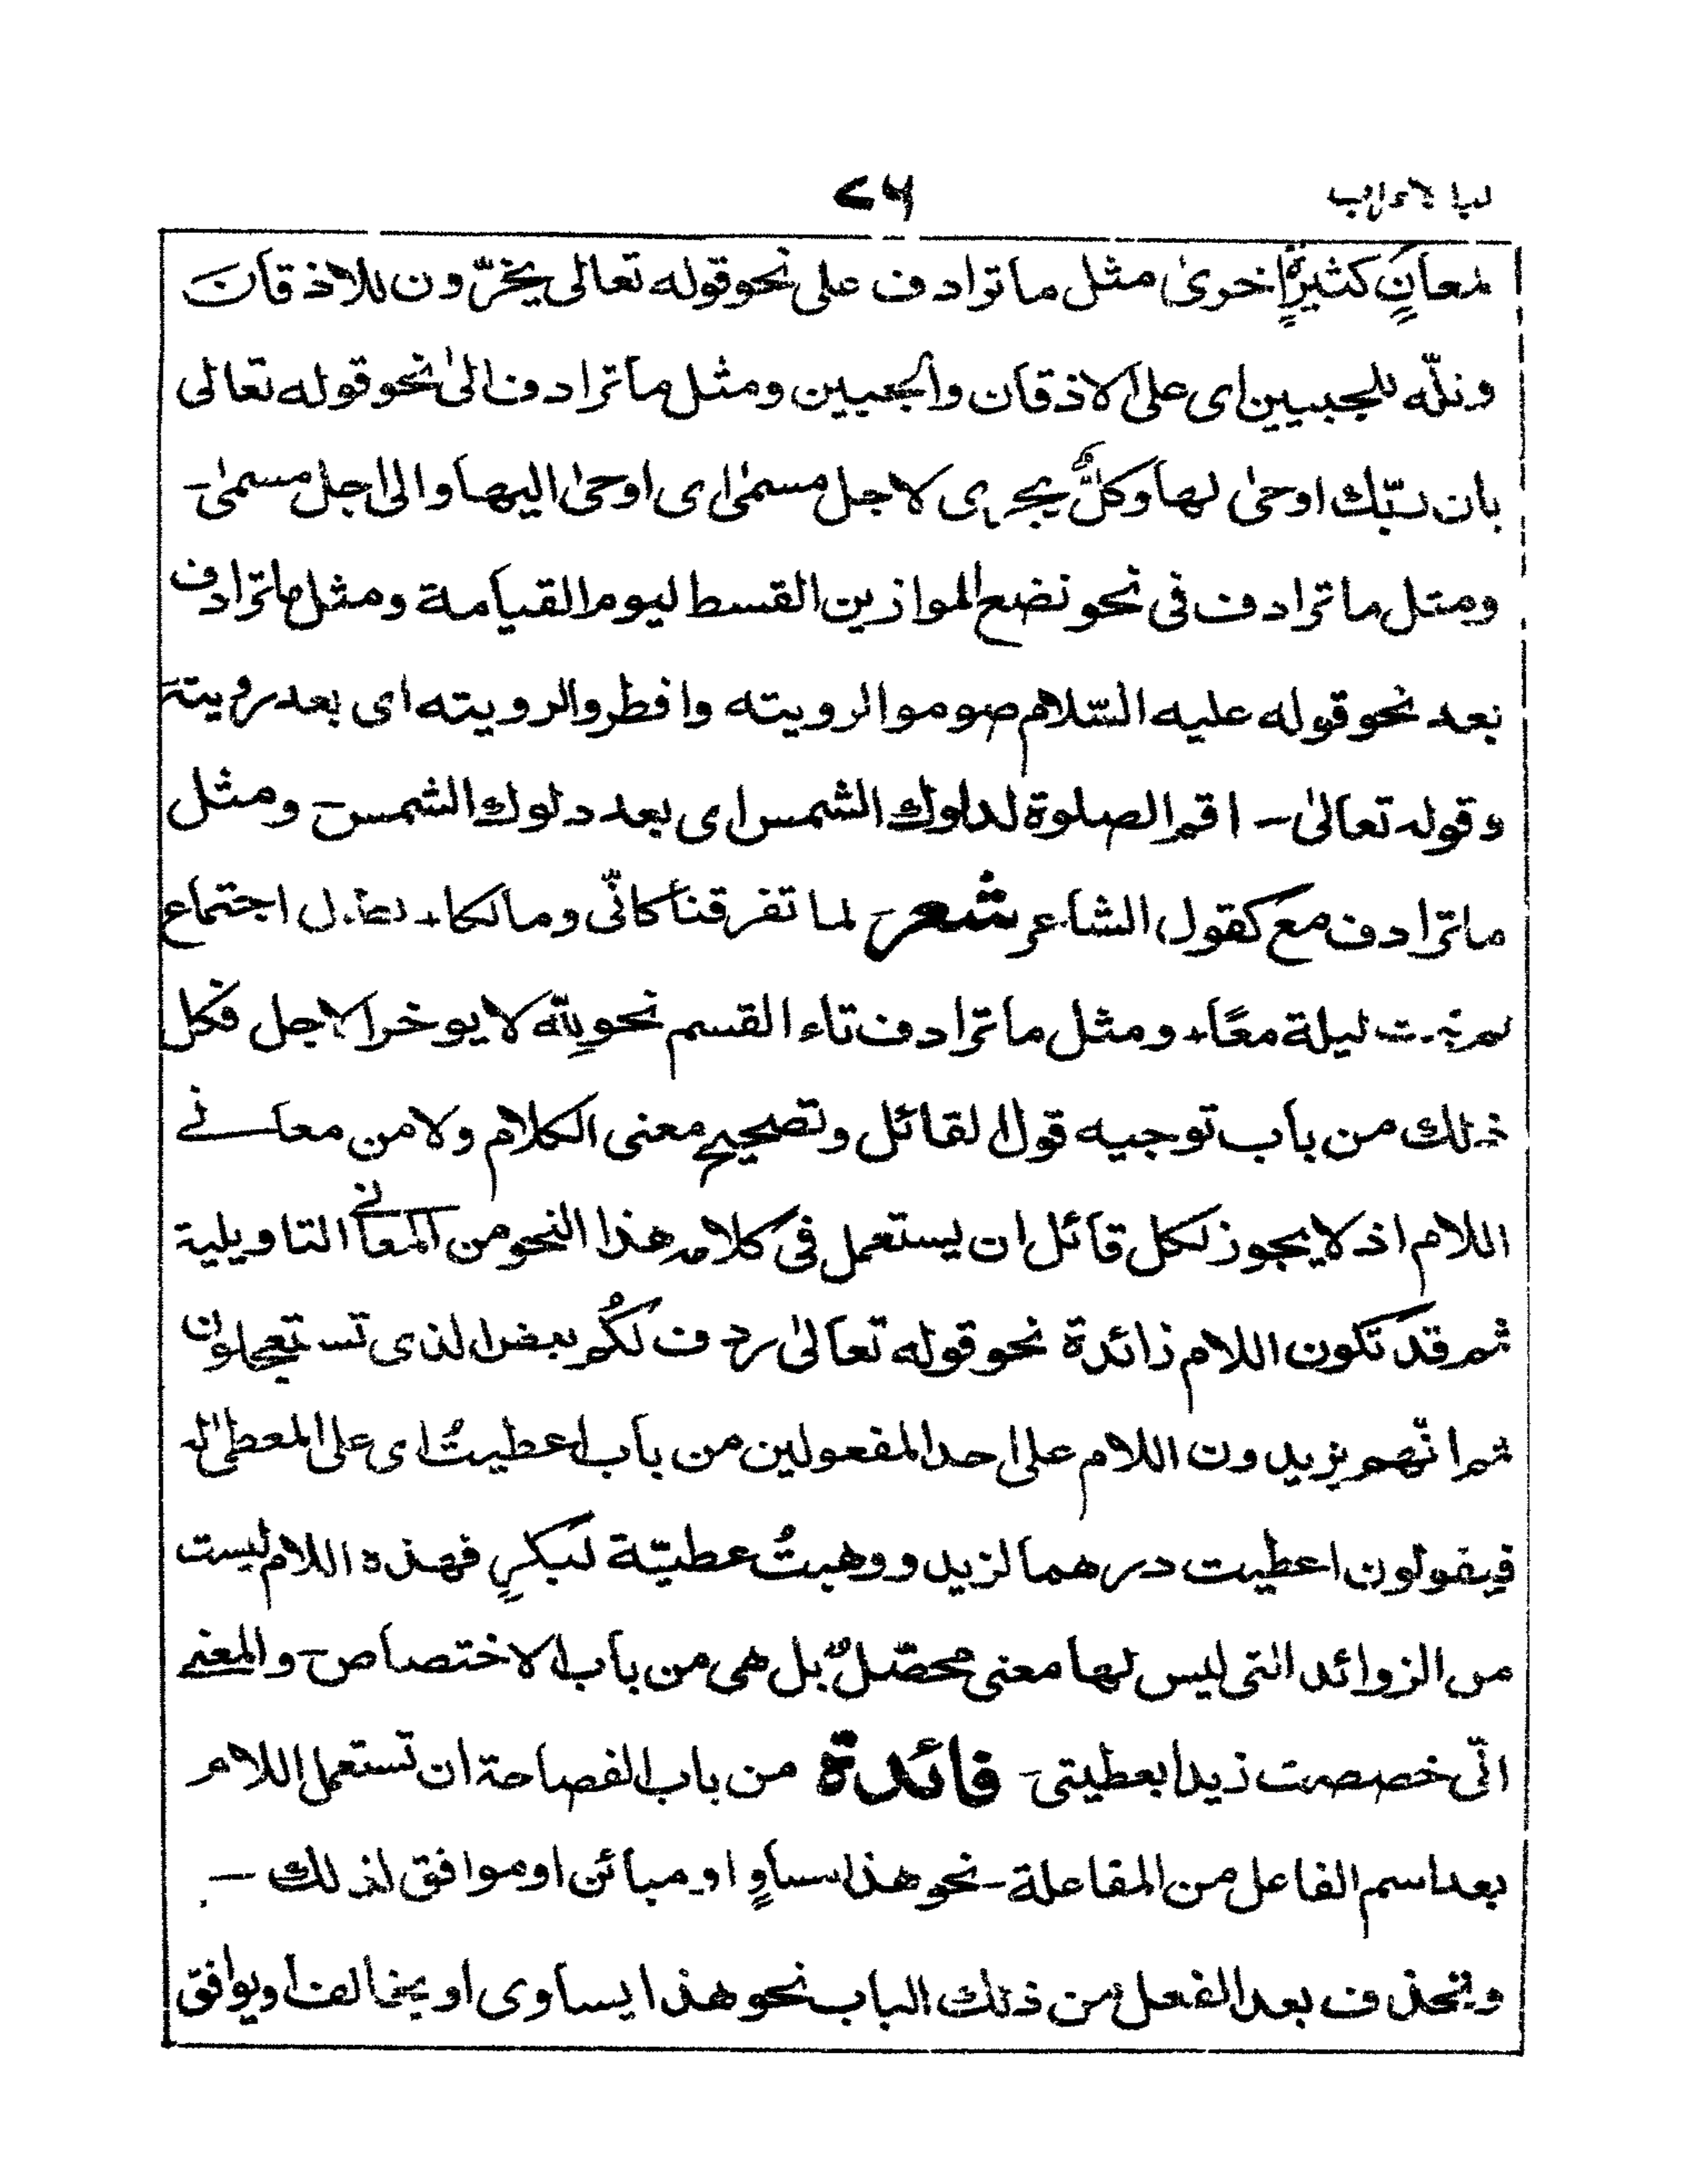 ٧٦
معانٍ كثيرةٍ اخرىٰ مثل ما ترادف على نحو قوله تعالى يخرّون للاذقان
وتلّه للجبين اى على الاذقان والجبين ومثل ما ترادف الىٰ نحو قوله تعالى
بان ربّك اوحىٰ لها وكلٌّ يجرى لاجل مسمىٰ اى اوحىٰ اليها والى اجل مسمىٰ-
ومثل ما ترادف فى نحو نضع الموازين القسط ليوم القيامة ومثل ما ترادف
بعد نحو قوله عليه السّلام صوموا لرويته وافطروا لرويته اى بعد رويته
وقوله تعالىٰ - اقم الصلوة لدلوك الشمس اى بعد دلوك الشمس - ومثل
ما ترادف مع كقول الشاعر شعر لما تفرقنا كانّى ومالكا + اجتماع
ليلة معًا + ومثل ما ترادف تاء القسم نحو لِلّٰه لا يوخر الاجل فكل
ذلك من باب توجيه قول القائل وتصحيح معنى الكلام ولا من معانى
اللام اذ لا يجوز لكل قائل ان يستعمل فى كلامه هذا النحو من المعانى التاويلية
ثم قد تكون اللام زائدة نحو قوله تعالىٰ ردف لكُم بعض الذى تستعجلون
ثم انّهم يزيدون اللام على احد المفعولين من باب اعطيتُ اى على المعطىٰ له
فيقولون اعطيت درهما لزيد ووهبتُ عطيّة لبكرٍ فهذه اللام ليست
من الزوائد التى ليس لها معنى محصّلٌ بل هى من باب الاختصاص - والمعنى
انّى خصصت زيدا بعطيتى - فائدة من باب الفصاحة ان تستعمل اللام
بعد اسم الفاعل من المفاعلة - نحو هذا مساوٍ او مبائن او موافق لذلك -
وتحذف بعد الفعل من ذلك الباب نحو هذا يساوى او يخالف او يوافق